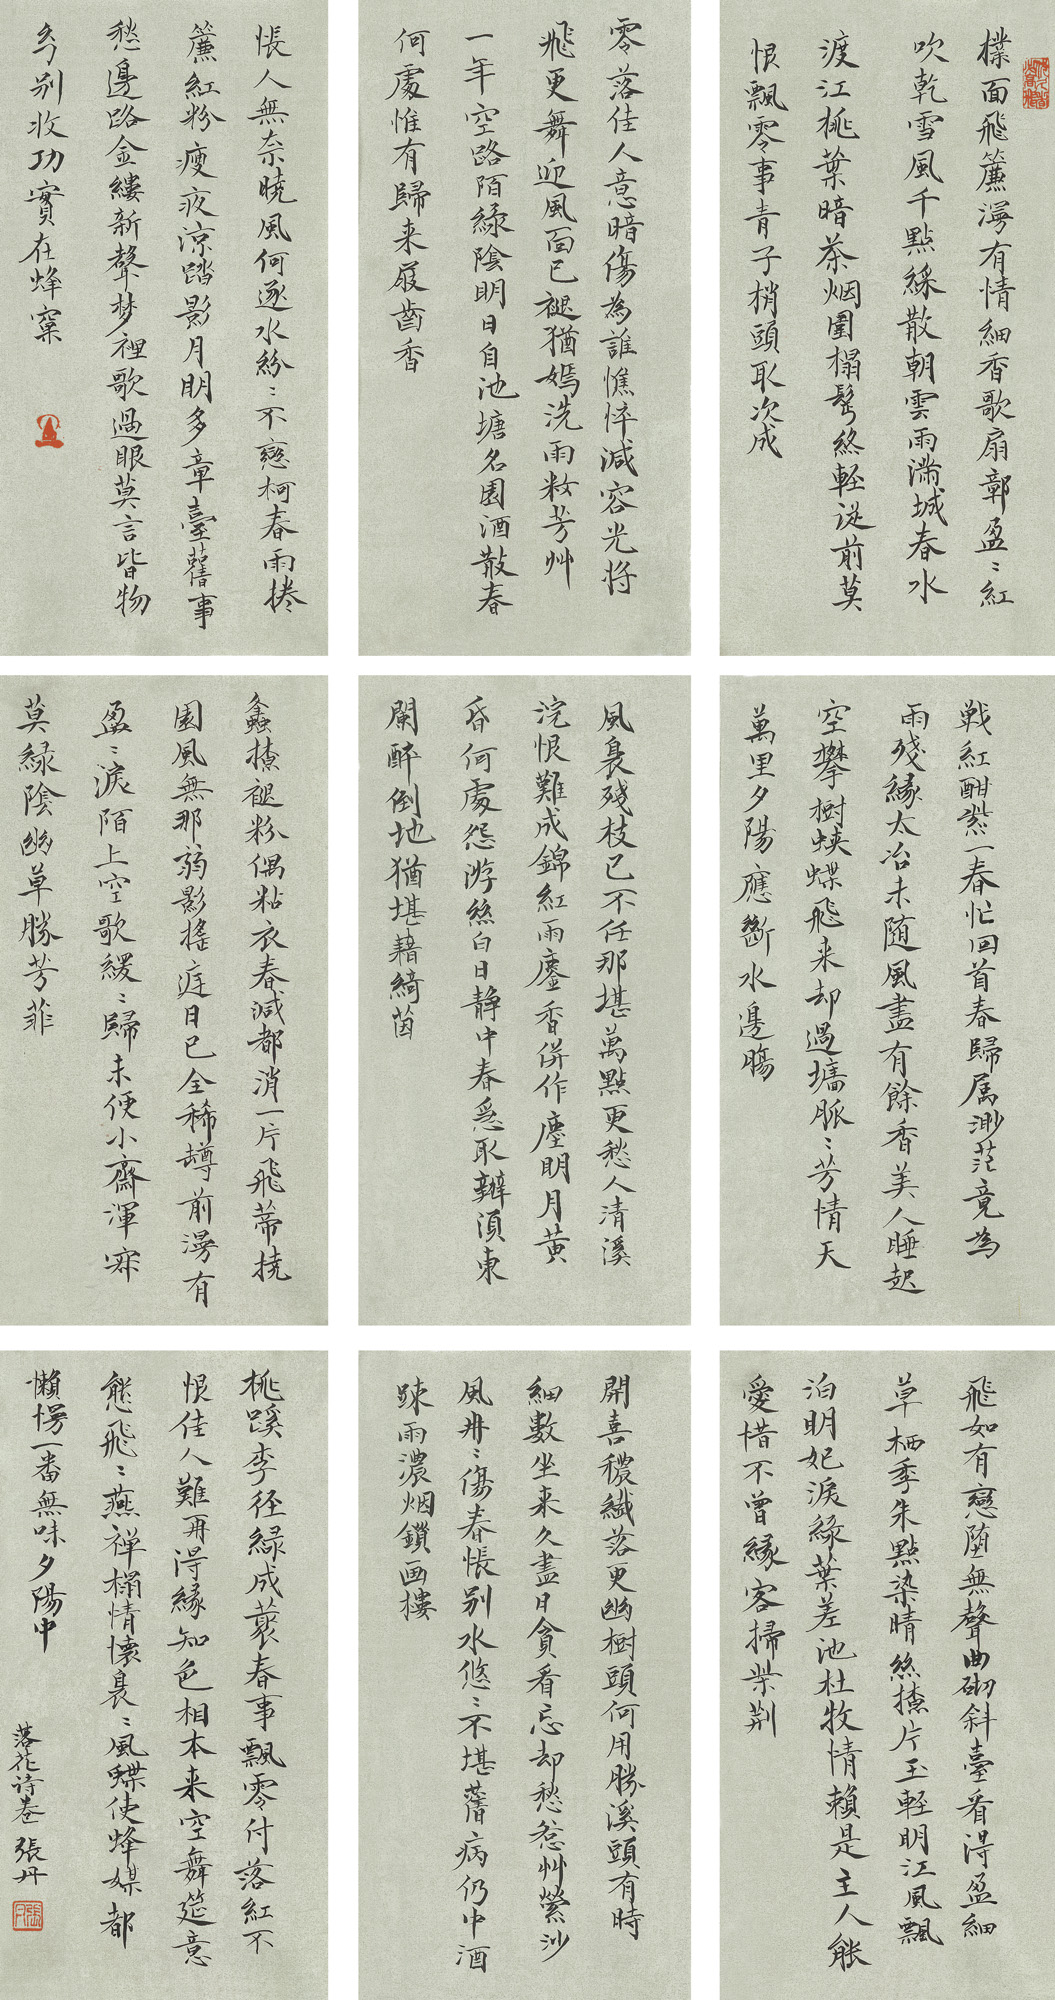 撲面飛簾漫有情細香歌扇鄣盈〻紅
吹乾雪風千點綵散朝雲雨滿城春水
渡江桃葉暗茶烟圍榻鬂絲輕從前莫
恨飄零事青子梢頭取次成
零落佳人意暗傷為誰憔悴減容光將
飛更舞迎風面已褪猶嫣洗雨妝芳艸
一年空路陌綠陰明日自池塘名園酒散春
何處惟有歸来屐齒香
悵人無奈曉風何逐水紛〻不戀柯春雨捲
簾紅粉瘦夜涼踏影月明多章臺舊事
愁邊路金縷新聲梦裡歌過眼莫言皆物
幻別收功實在蜂窠
戰紅酣紫一春忙回首春歸属渺茫竟為
雨殘緣太冶未随風盡有餘香美人睡起
空攀樹蛱蝶飛来却過墻脈〻芳情天
萬里夕陽應斷水邊腸
風裊殘枝已不任那堪萬點更愁人清溪
浣恨難成錦紅雨塵香併作塵明月黃
昏何處怨游絲白日静中春急取辦須東
闌醉倒地猶堪藉綺茵
蠡揸褪粉偶粘衣春減都消一片飛蒂撓
園風無那弱影搖庭日已全稀罇前漫有
盈〻淚陌上空歌緩〻歸未便小齋渾寂
莫緑陰幽草勝芳菲
飛如有戀墮無聲曲砌斜臺看得盈細
草栖季朱點染晴絲揸片玉輕明江風飄
泊明妃淚綠葉差池杜牧情賴是主人能
愛惜不曾緣客掃柴荆
開喜穠纖落更幽樹頭何用勝溪頭有時
細數坐来久盡日貪看忘却愁惹艸縈沙
風冉〻傷春悵别水悠〻不堪舊病仍中酒
踈雨濃烟鎖画樓
桃蹊李径緑成叢春事飄零付落紅不
恨佳人難再得緣知色相本来空舞筵意
態飛〻燕禅榻情懷裊〻風蝶使蜂媒都
懶愣一番無味夕陽中
落花诗卷 張丹